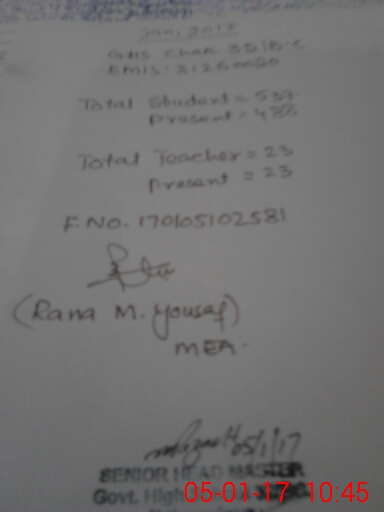 Jan, 2017
GHS Chak 351B-C
EMIS: 31260020
Total Student = 537
Present = 488
Total Teacher = 23
Present = 23
F.NO. 170105102581
(Rana M. Yousaf)
MEA.
05/1/17
SENIOR HEAD MASTER
Govt. High
05-01-17 10:45